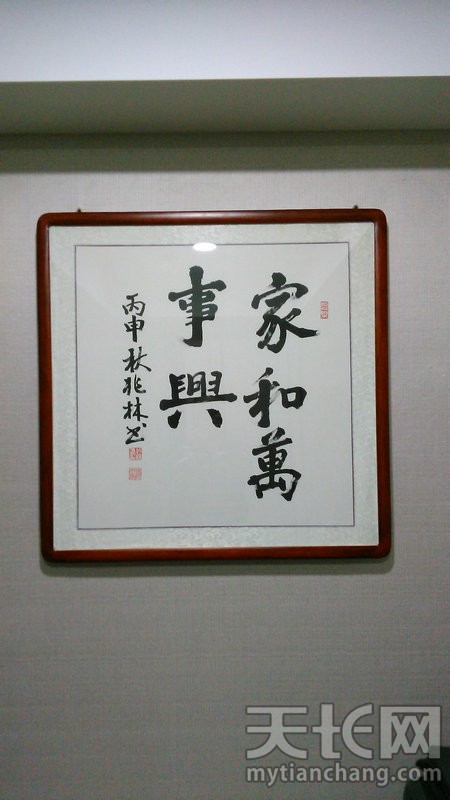 家和萬
事興
丙申秋兆林书
天长网
mytianchang.com